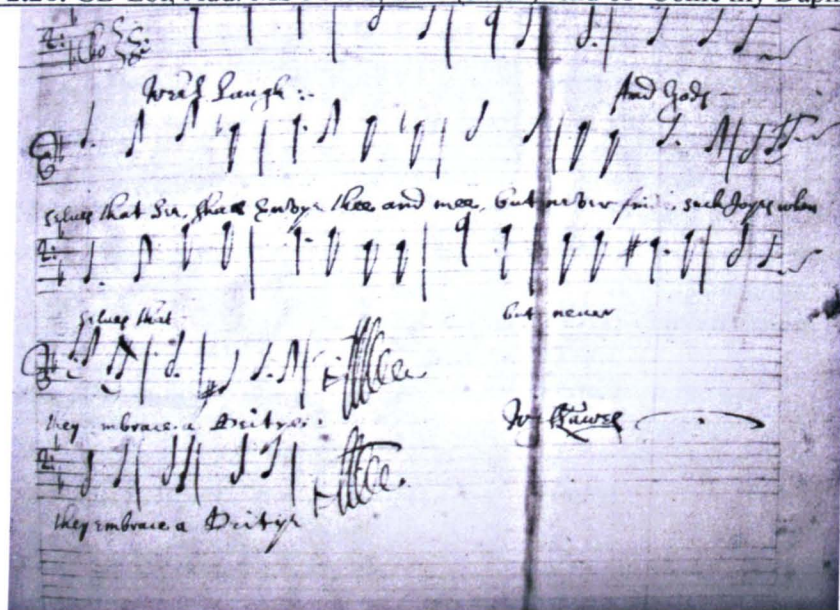 Cho
Weele Laugh :- And Gods -
selves that See, shall Envye thee and mee, but never find such Joyes when
selves that but never
they embrace a Deitye.
W Lawes
they embrace a Deitye